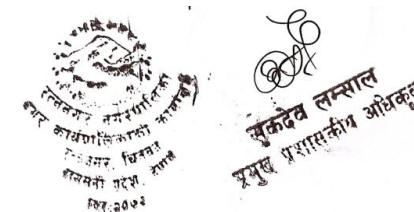 रत्ननगर नगरपालिका
नगर कार्यपालिकाको कार्यालय
रत्ननगर चितवन
बागमती प्रदेश, नेपाल
२०७३
सुकदेव लम्साल
प्रमुख प्रशासकीय अधिकृत